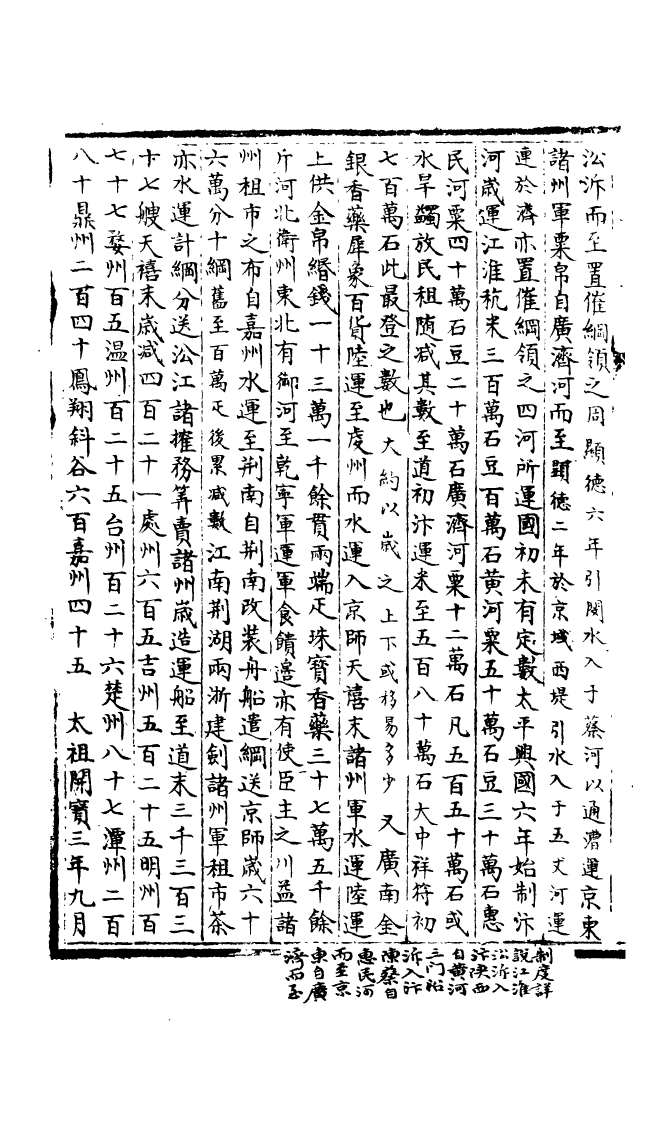 沿泝而至置催綱領之周顯德六年引閔水入于蔡河以通漕運京東
諸州軍粟帛自廣濟河而至顯德二年於京城西堤引水入于五丈河運
連於濟亦置催綱領之四河所運國初未有定數太平興國六年始制汴
河歲運江淮秔米三百萬石豆百萬石黃河粟五十萬石豆三十萬石惠
民河粟四十萬石豆二十萬石廣濟河粟十二萬石凡五百五十萬石或
水旱蠲放民租隨减其數至道初汴運米至五百八十萬石大中祥符初
七百萬石此最登之數也大約以歲之上下或移易多少又廣南金
銀香藥犀象百貨陸運至虔州而水運入京師天禧末諸州軍水運陸運
上供金帛緡錢一十三萬一千餘貫兩端疋珠寶香藥三十七萬五千餘
斤河北衛州東北有御河至乾寧軍運軍食饋邊亦有使臣主之川益諸
州租市之布自嘉州水運至荆南自荆南改裝舟船遣綱送京師歲六十
六萬分十綱舊至百萬疋後累减數江南荆湖兩浙建劍諸州軍租市茶
亦水運計綱分送沿江諸搉務筭賣諸州歲造運船至道末三千三百三
十七艘天禧末歲减四百二十一處州六百五吉州五百二十五明州百
七十七婺州百五温州百二十五台州百二十六楚州八十七潭州二百
八十鼎州二百四十鳳翔斜谷六百嘉州四十五 太祖開寶三年九月
制度詳
說江淮
沿泝入
汴陝西
自黃河
三門沿
泝入汴
陳蔡自
惠民河
而至京
東自廣
濟而至